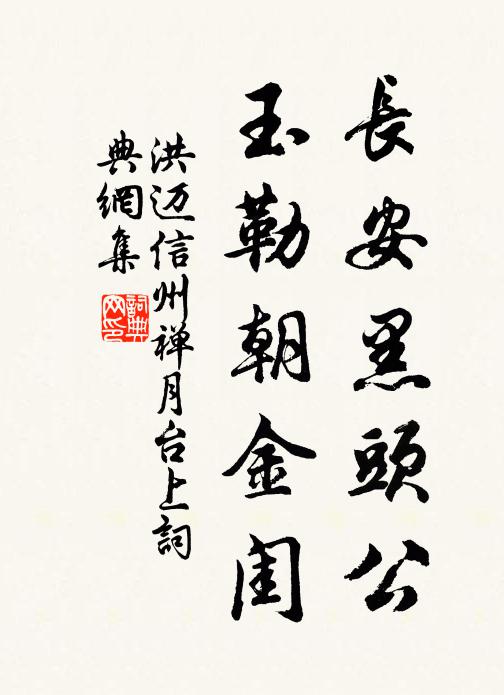 長安黑頭公
玉勒朝金閨
洪迈信州禅月台上詞
典網集
詞典网印